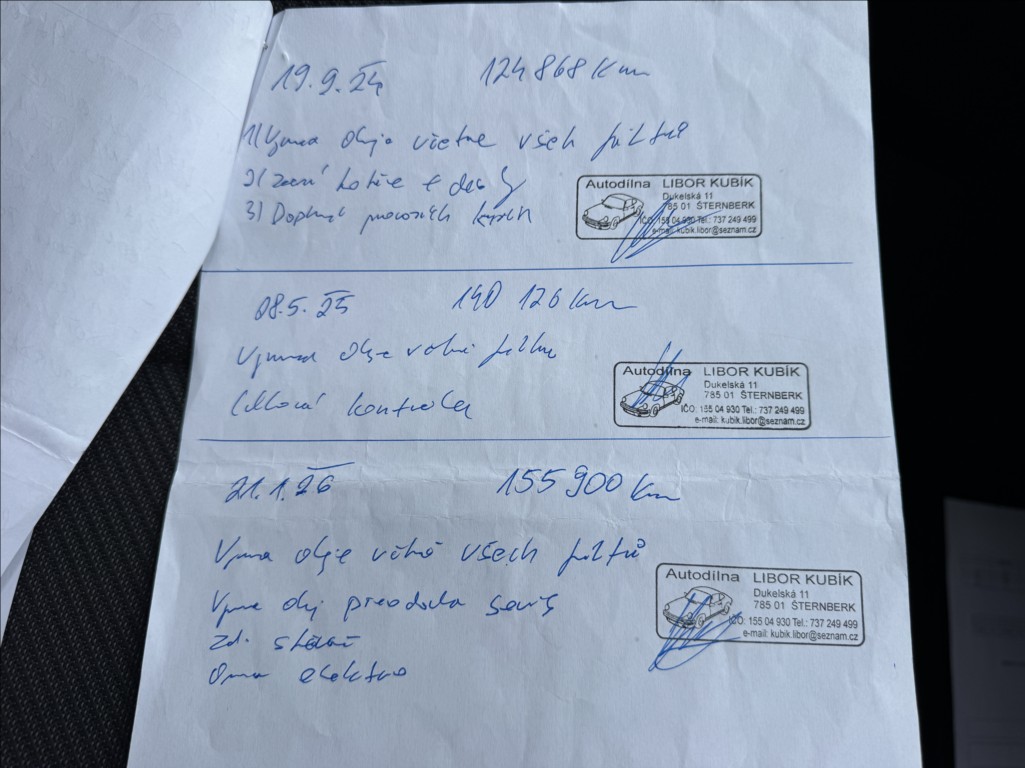 19.9.24 124 868 Km
1) Výměna oleje včetně všech filtrů
2) zadní kotouče + des
3) Doplnění provozních kapalin
Autodílna LIBOR KUBÍK
Dukelská 11
785 01 ŠTERNBERK
IČO: 155 04 930 Tel.: 737 249 499
e-mail: kubik.libor@seznam.cz
08.5.25 140 126 Km
Výměna oleje včetně filtru
Celková kontrola
Autodílna LIBOR KUBÍK
Dukelská 11
785 01 ŠTERNBERK
IČO: 155 04 930 Tel.: 737 249 499
e-mail: kubik.libor@seznam.cz
21.1.26 155 900 Km
Výměna oleje včetně všech filtrů
Výměna olej převodovka servis
zd.
elektro
Autodílna LIBOR KUBÍK
Dukelská 11
785 01 ŠTERNBERK
IČO: 155 04 930 Tel.: 737 249 499
e-mail: kubik.libor@seznam.cz